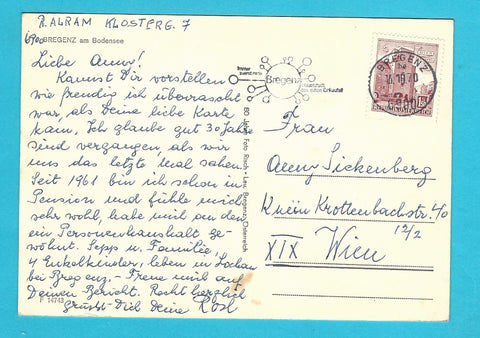 R. ALRAM KLOSTERG. 7
6900 BREGENZ am Bodensee
Liebe Anny!
Kannst Dir vorstellen
wie freudig ich überrascht
war, als Deine liebe Karte
kam. Ich glaube gut 30 Jahre
sind vergangen, als wir
uns das letzte mal sahen.
Seit 1961 bin ich schon in
Pension und fühle mich
sehr wohl, habe mich an den
ein Personenhaushalt ge-
wöhnt. Sepp u. Familie,
4 Enkelkinder, leben in Lochau
bei Bregenz. - Freue mich auf
Deinen Bericht. Recht herzlich
grüsst Dich Deine Rosl
F 14743
Immer
Bregenz
BREGENZ
Frau
Anny Sickenberg
Krottenbachstr. 40
12/2
XIX Wien